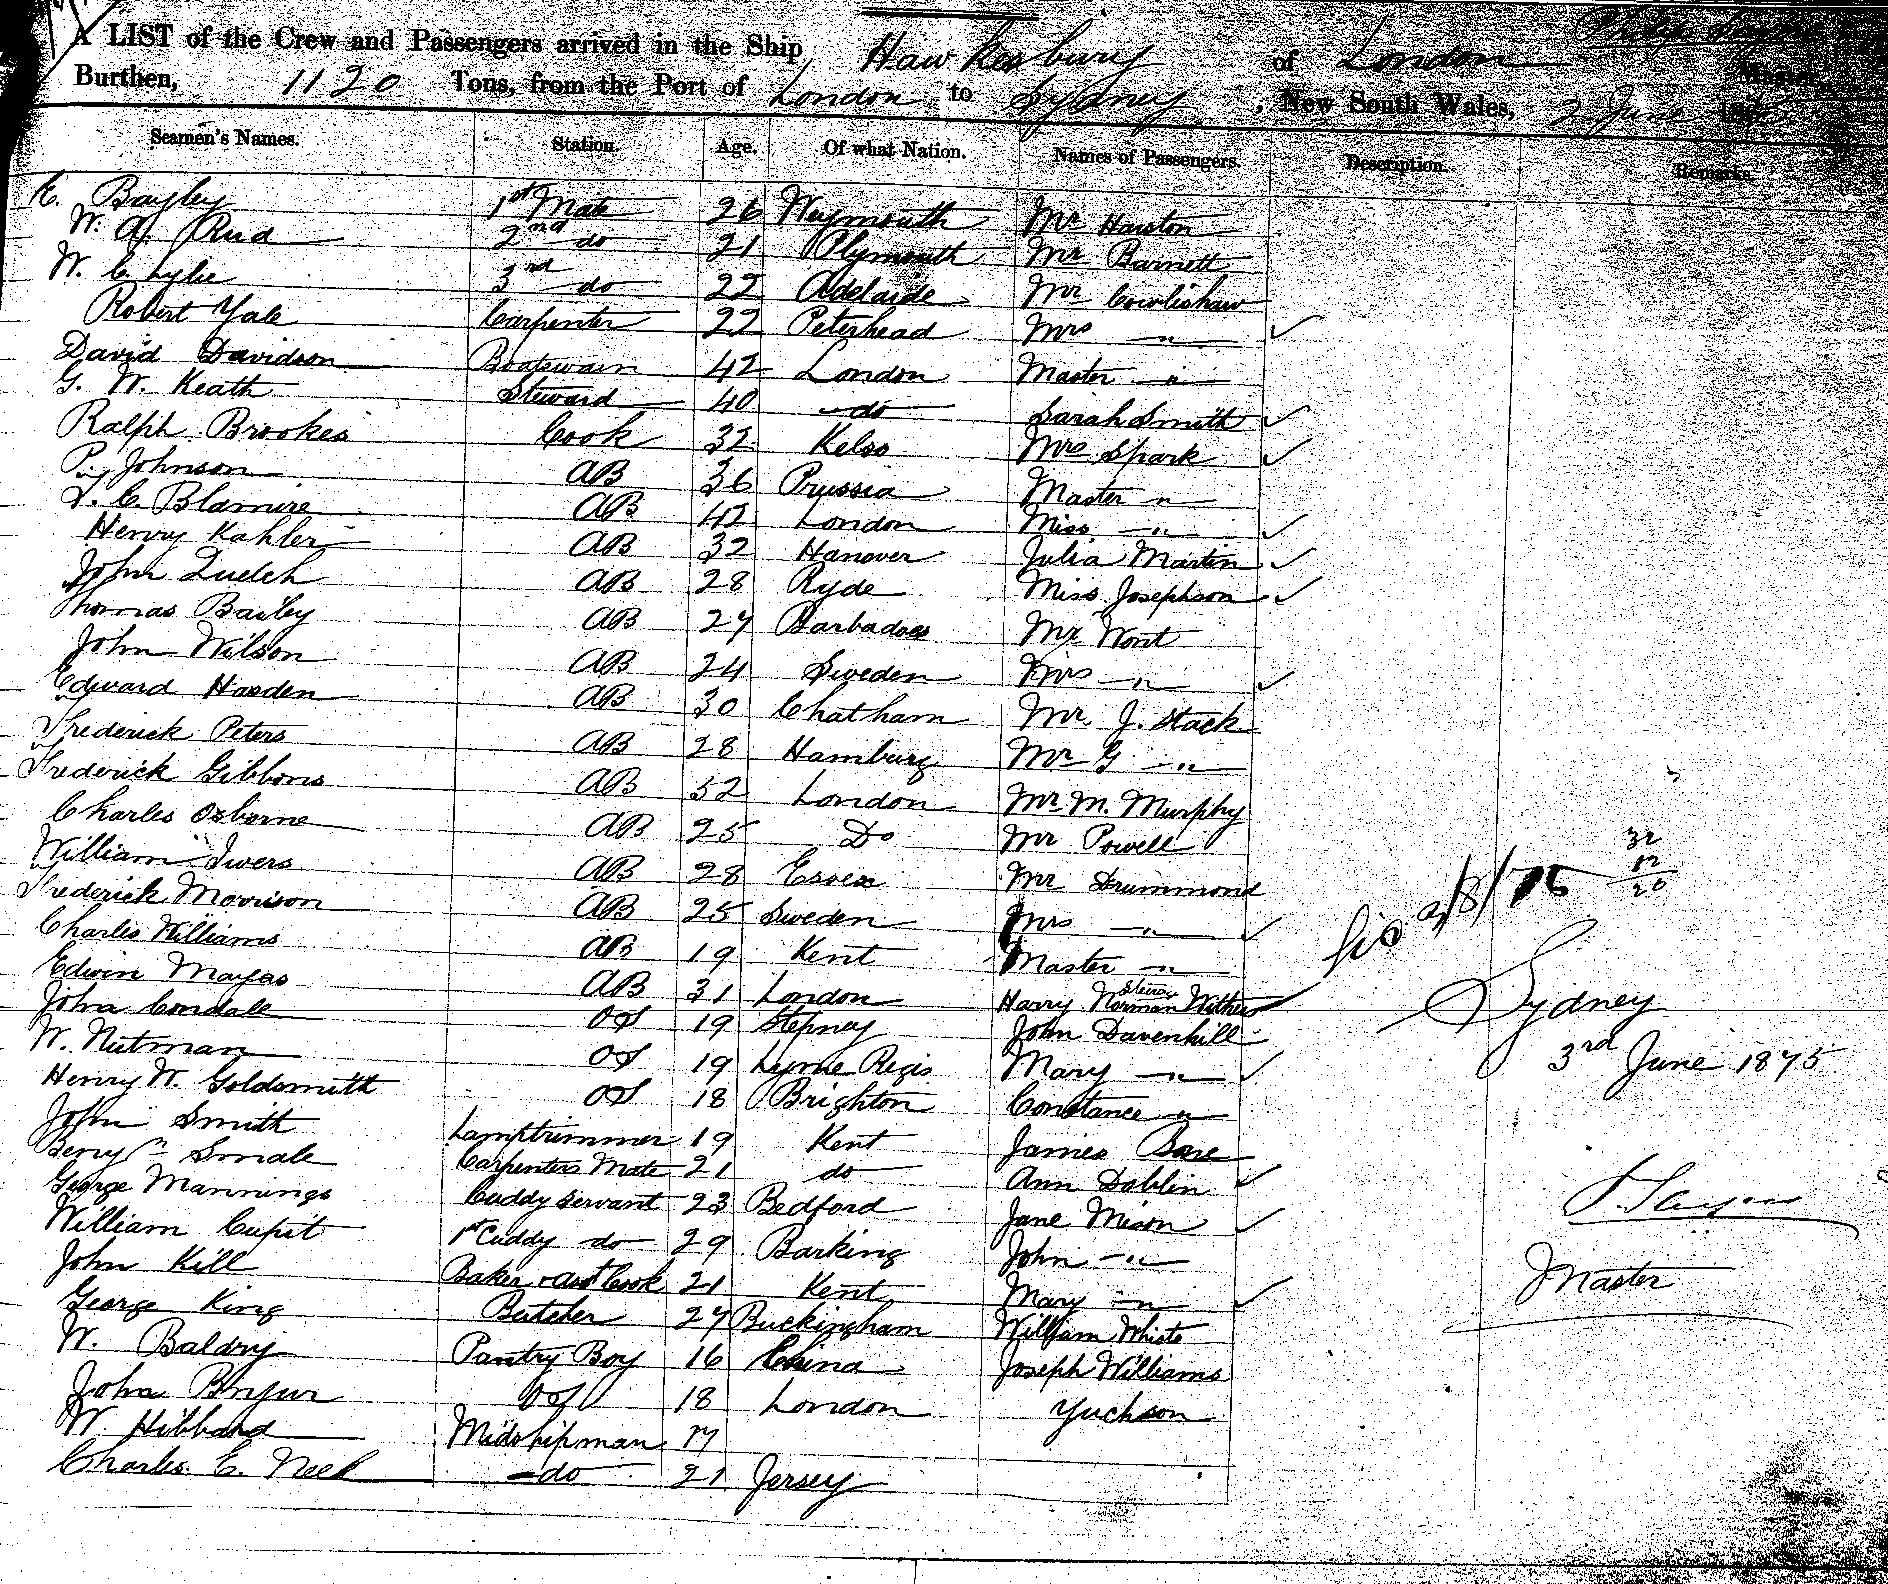 A LIST of the Crew and Passengers arrived in the Ship Hawkesbury of London
Burthen, 1120 Tons, from the Port of London to Sydney, New South Wales, 2 June
Seamen's Names. Station. Age. Of what Nation. Names of Passengers. Description. Remarks.
E. Bayley 1st Mate 26 Weymouth Mr Hairston
W. A. Reid 2nd do 21 Plymouth Mr Barnett
W. C. Lylie 3rd do 22 Adelaide Mr Cowlishaw
Robert Yale Carpenter 22 Peterhead Mrs "
David Davidson Boatswain 42 London Master "
G. W. Keath Steward 40 do Sarah Smith
Ralph Brookes Cook 32 Kelso Mrs Spark
P. Johnson AB 36 Prussia Master "
C. Blamire AB 42 London Miss "
Henry Kahler AB 32 Hanover Julia Martin
John Quelch AB 28 Ryde Miss Josephson
Thomas Bailey AB 27 Barbadoes Mr Wont
John Wilson AB 24 Sweden Mrs "
Edward Hasden AB 30 Chatham Mr J. Stack
Frederick Peters AB 28 Hamburg Mr G "
Frederick Gibbons AB 32 London Mr M. Murphy
Charles Osborne AB 25 Do Mr Powell
William Ivers AB 28 Essex Mr Drummond
Frederick Morrison AB 25 Sweden Mrs "
Charles Williams AB 19 Kent Master "
Edwin Mayas AB 31 London Harry Norman Withers
John Condale OS 19 Stepney John Davenhill
W. Nutman OS 19 Lyme Regis Mary "
Henry W. Goldsmith OS 18 Brighton Constance "
John Smith Lamptrimmer 19 Kent James Bare
Benjn Smale Carpenters Mate 21 do Ann Doblin
George Mannings Cuddy Servant 23 Bedford Jane Mison
William Cupit 1st Cuddy do 29 Barking John "
John Kill Baker & Asst Cook 21 Kent Mary "
George King Butcher 27 Buckingham William White
W. Baldry Pantry Boy 16 China Joseph Williams
John Bryur OS 18 London Yuchson
W. Hibbard Midshipman 17
Charles E. Neel do 21 Jersey
32
12
20
Sydney
3rd June 1875
Master